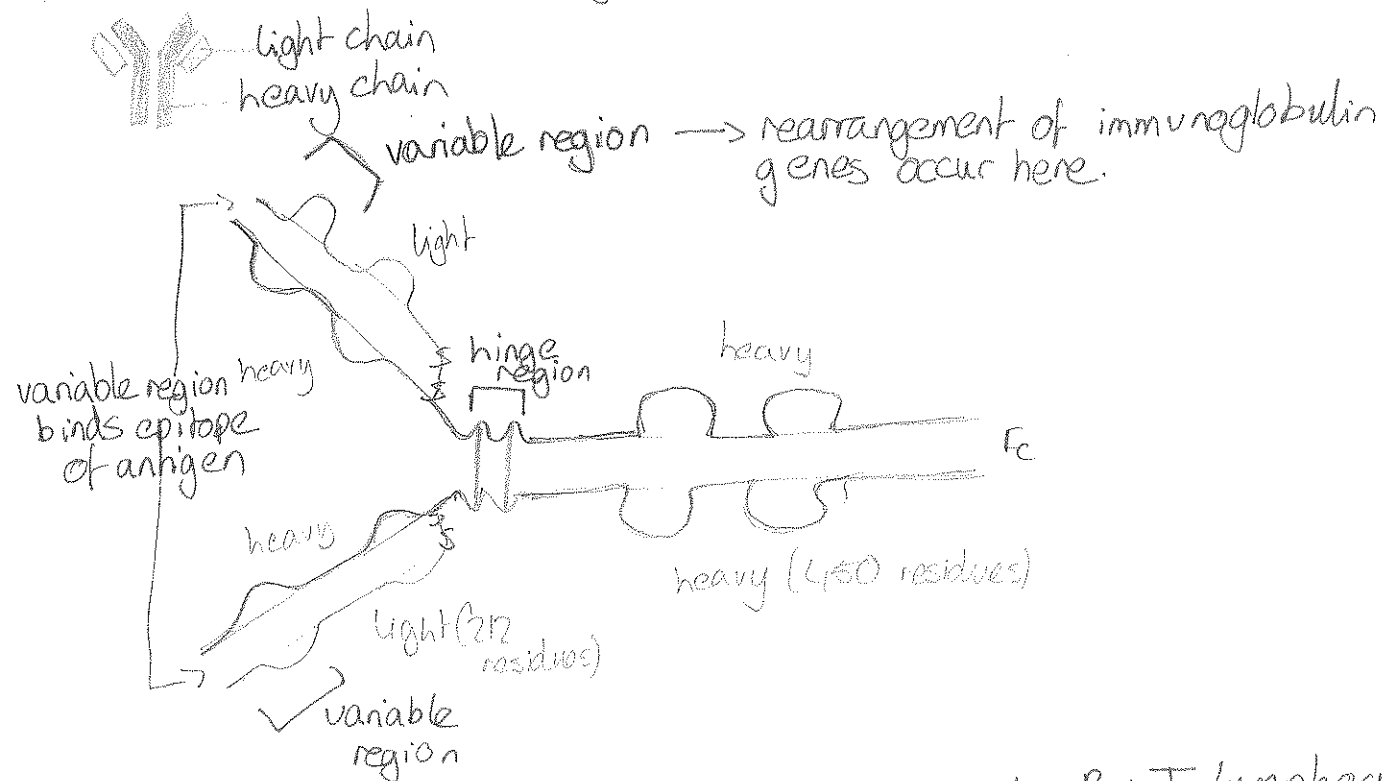 light chain
heavy chain
variable region → rearrangement of immunoglobulin
genes occur here.
light
hinge
region
heavy
variable region heavy
binds epitope
of antigen
Fc
heavy
heavy (450 residues)
light (212
residues)
variable
region